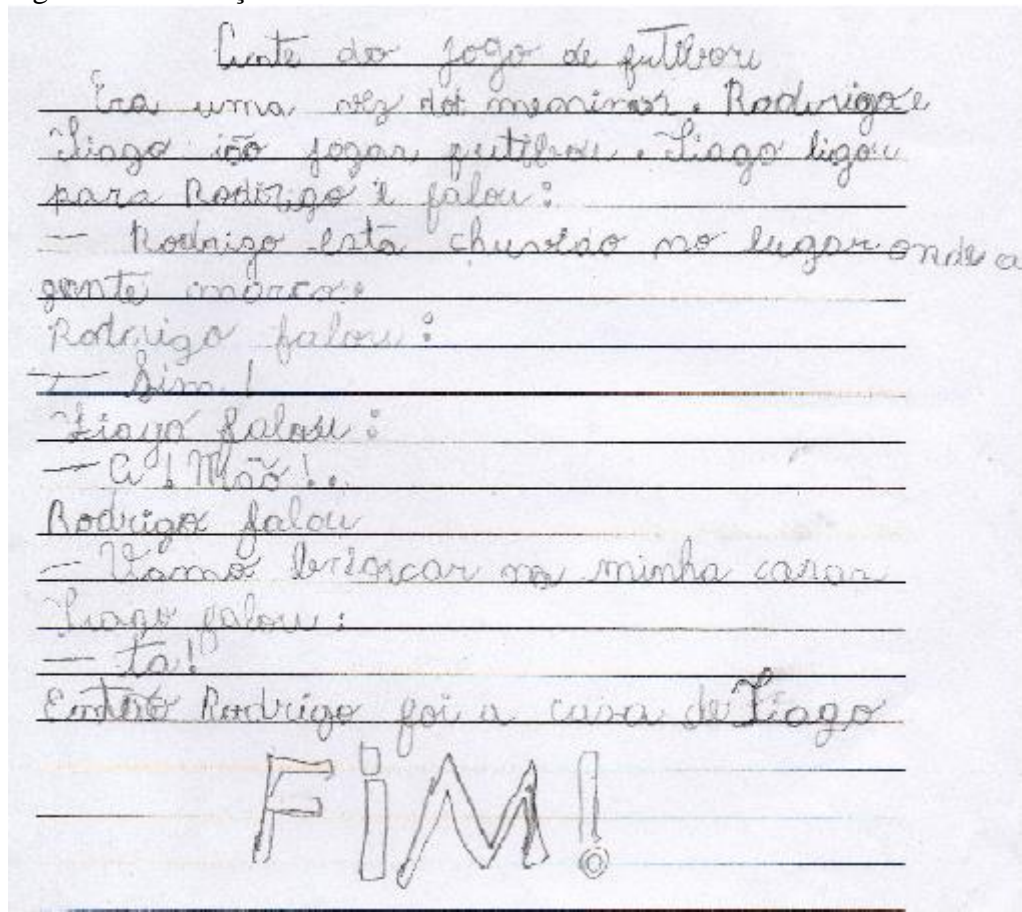 do jogo de
Era uma vez dois meninos. Rodrigo e
Tiago ião jogar futibou. Tiago ligou
para Rodrigo e falou:
— Rodrigo esta no lugar onde a
gente
Rodrigo falou:
— Sim!
Tiago falou:
— A! Não!..
Rodrigo falou
— Vamo brincar na minha casa
Tiago falou:
— ta!
Rodrigo foi a casa de Tiago
FiM!